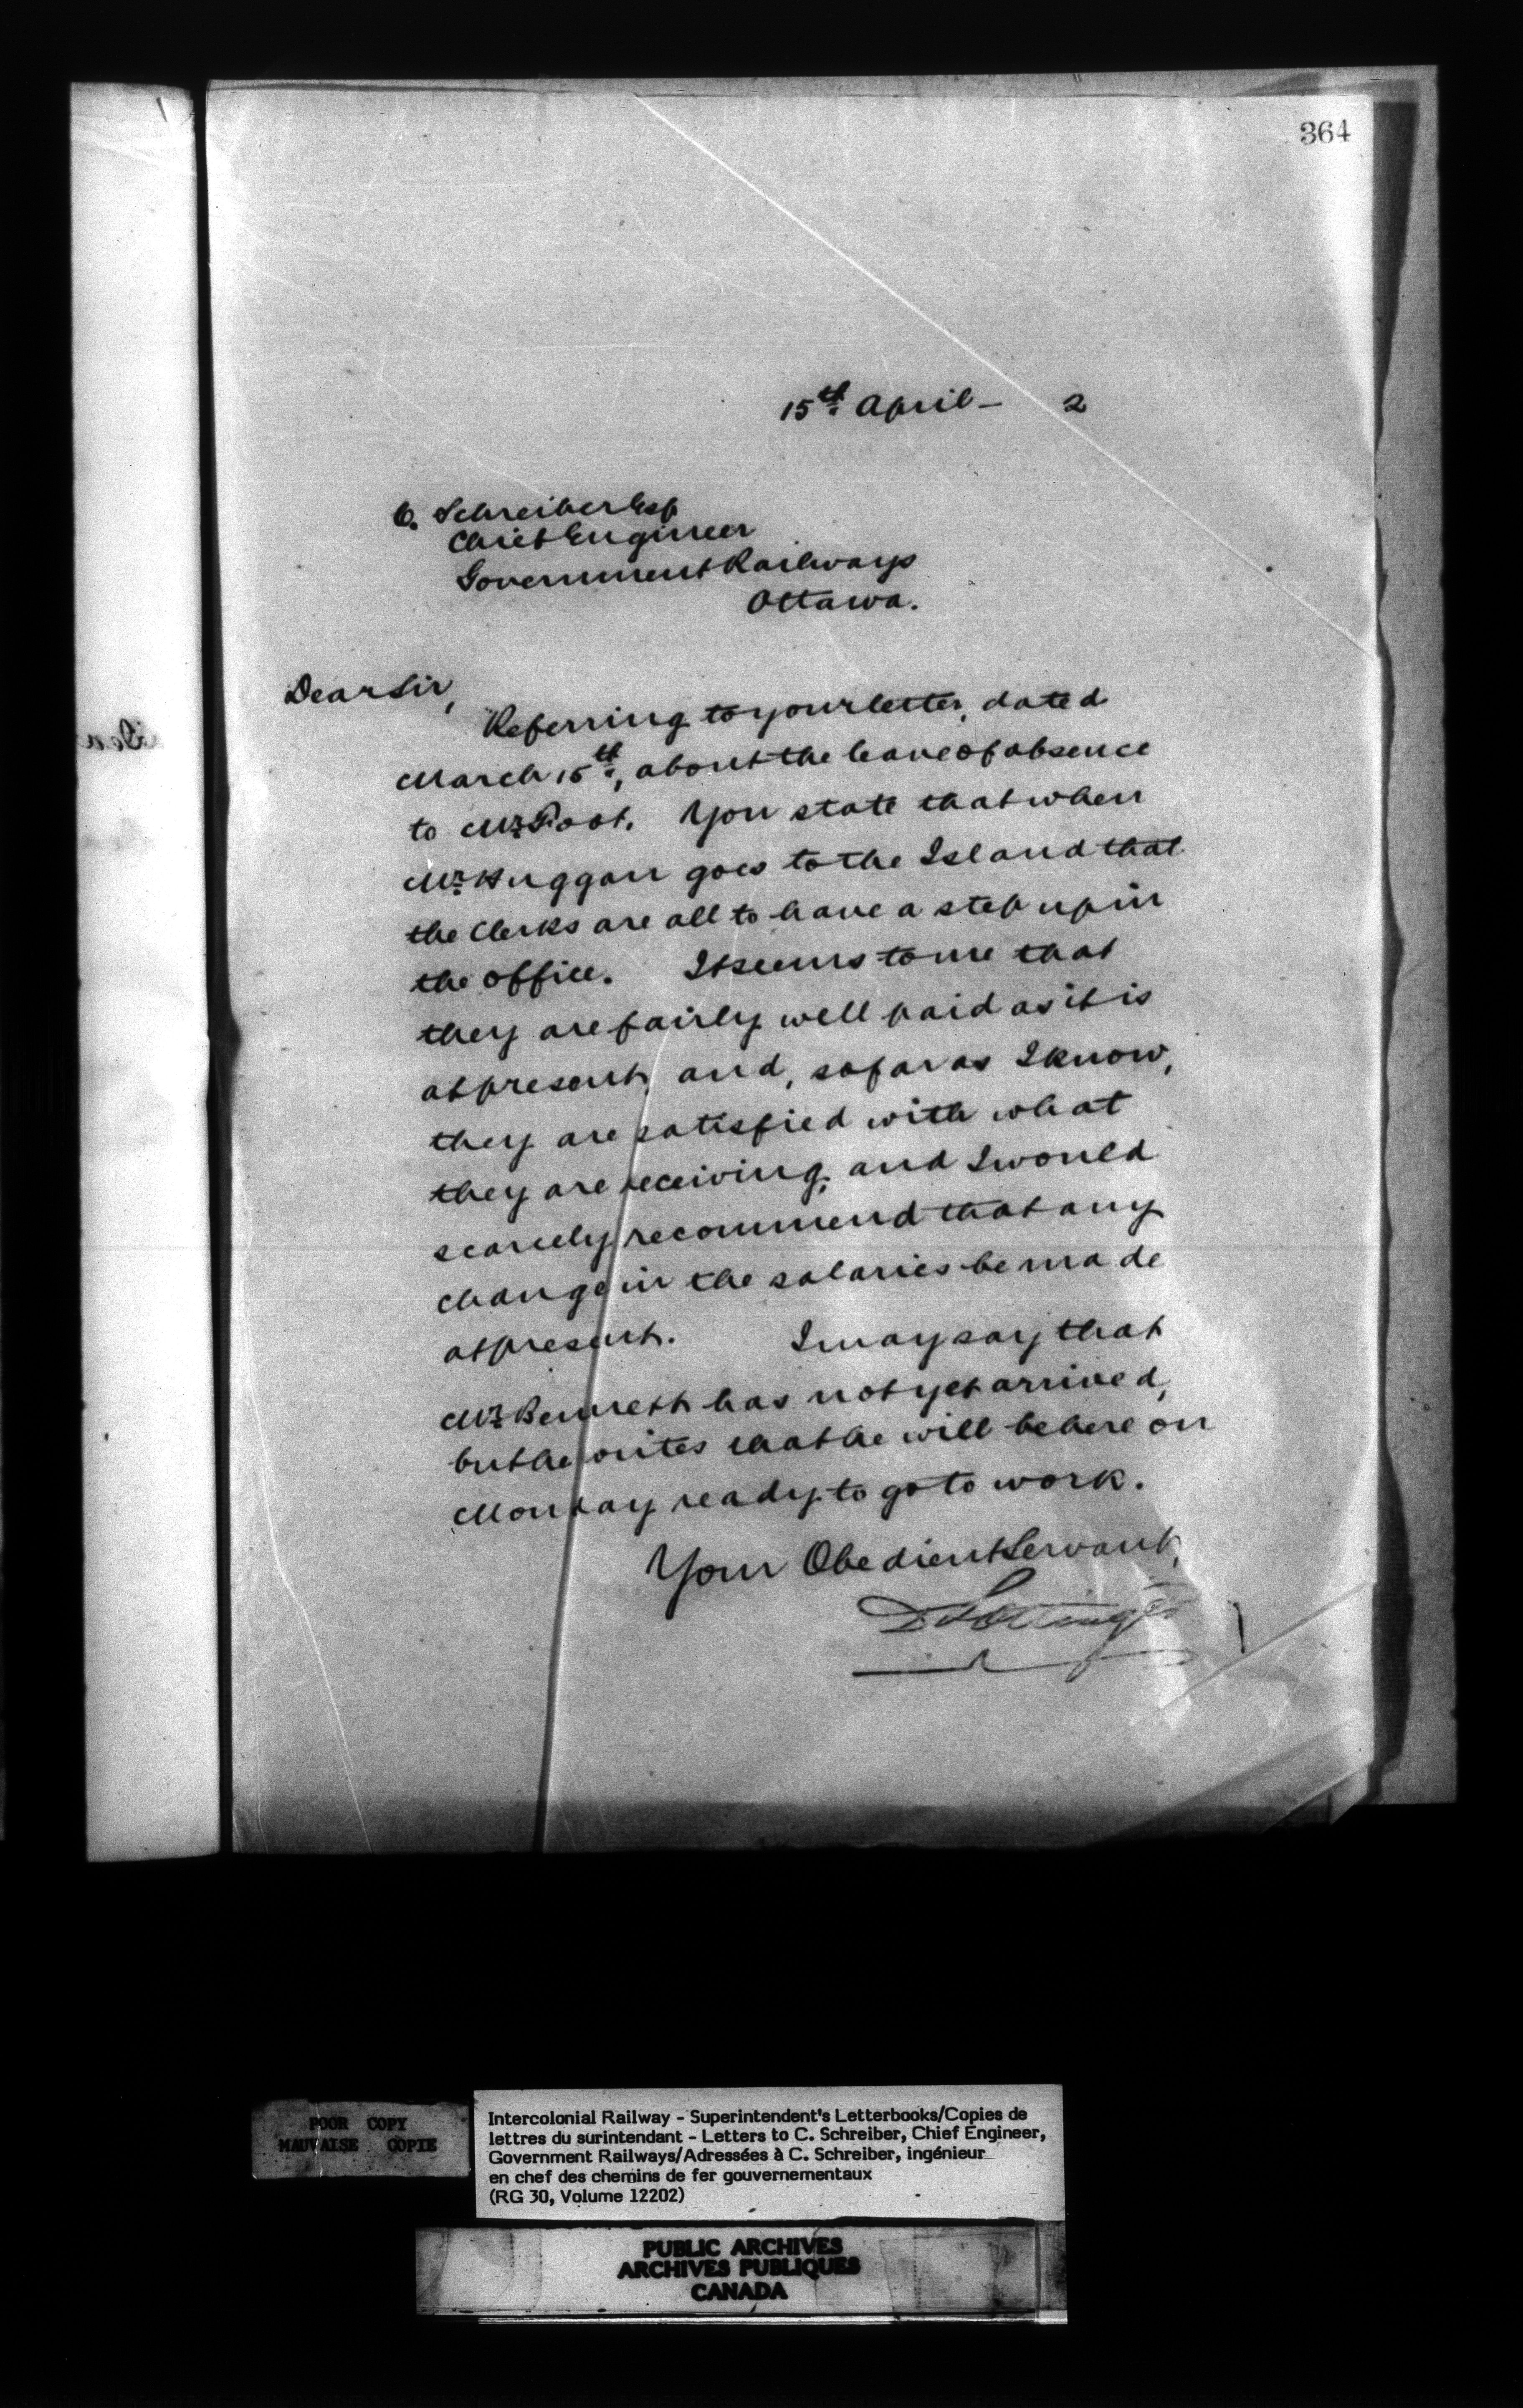 364
15th April - 2
C. Schreiber Esq
Chief Engineer
Government Railways
Ottawa.
Dear Sir,
Referring to your letter, dated
March 15th, about the leave of absence
to Mr Foot. You state that when
Mr Huggan goes to the Island that
the Clerks are all to have a step up in
the office. It seems to me that
they are fairly well paid as it is
at present, and, so far as I know,
they are satisfied with what
they are receiving, and I would
scarcely recommend that any
change in the salaries be made
at present. I may say that
Mr Bennett has not yet arrived,
but he writes that he will be here on
Monday ready to go to work.
Your Obedient Servant,
D Pottinger
POOR COPY
MAUVAISE COPIE
Intercolonial Railway - Superintendent's Letterbooks/Copies de
lettres du surintendant - Letters to C. Schreiber, Chief Engineer,
Government Railways/Adressées à C. Schreiber, ingénieur
en chef des chemins de fer gouvernementaux
(RG 30, Volume 12202)
PUBLIC ARCHIVES
ARCHIVES PUBLIQUES
CANADA